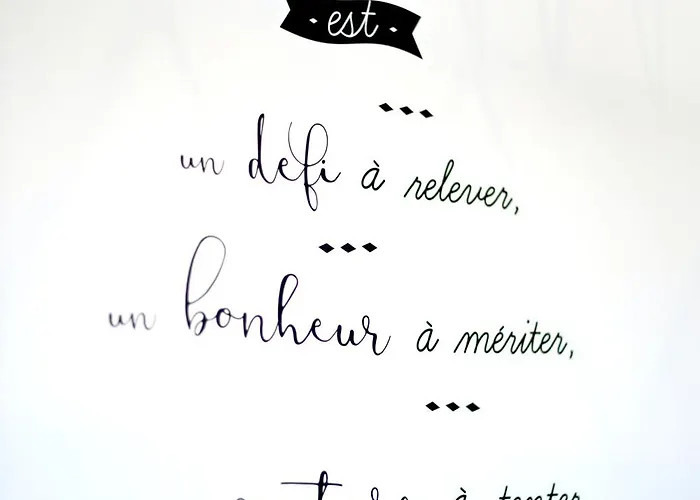 • est •
un défi à relever,
un bonheur à mériter,
à tenter